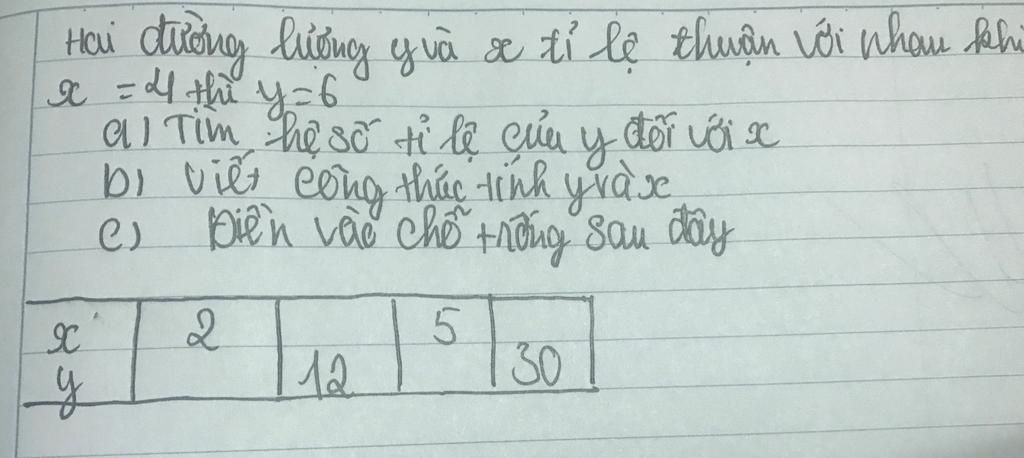 Hai đường lượng y và x tỉ lệ thuận với nhau khi
x = 4 thì y = 6
a) Tìm hệ số tỉ lệ của y đối với x
b) Viết công thức tính y và x
c) Điền vào chỗ trống sau đây
x 2 5
y 12 30